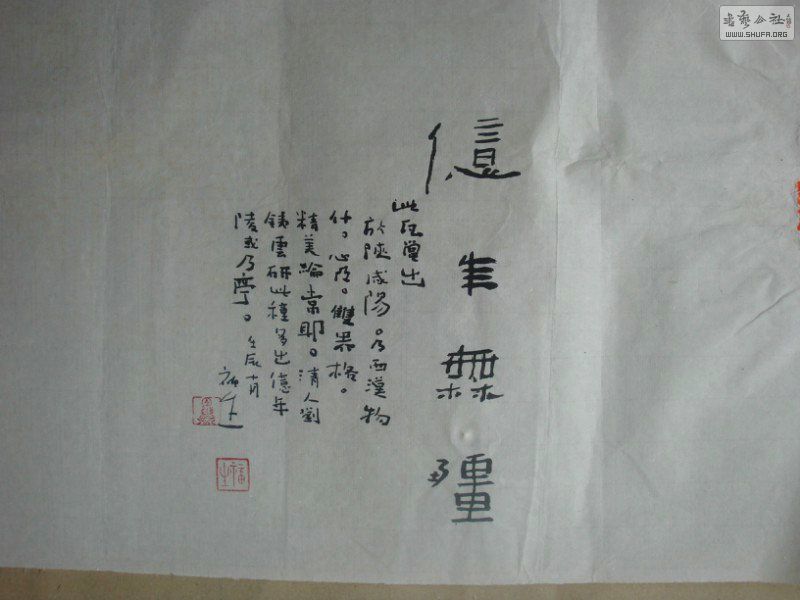 億年無疆
此瓦當出
於陝咸陽。乃西漢物
什。心。雙界格。
精美論常。清人劉
鐵雲研此種多出億年
陵或乃亭。壬辰十月
書藝公社
WWW.SHUFA.ORG